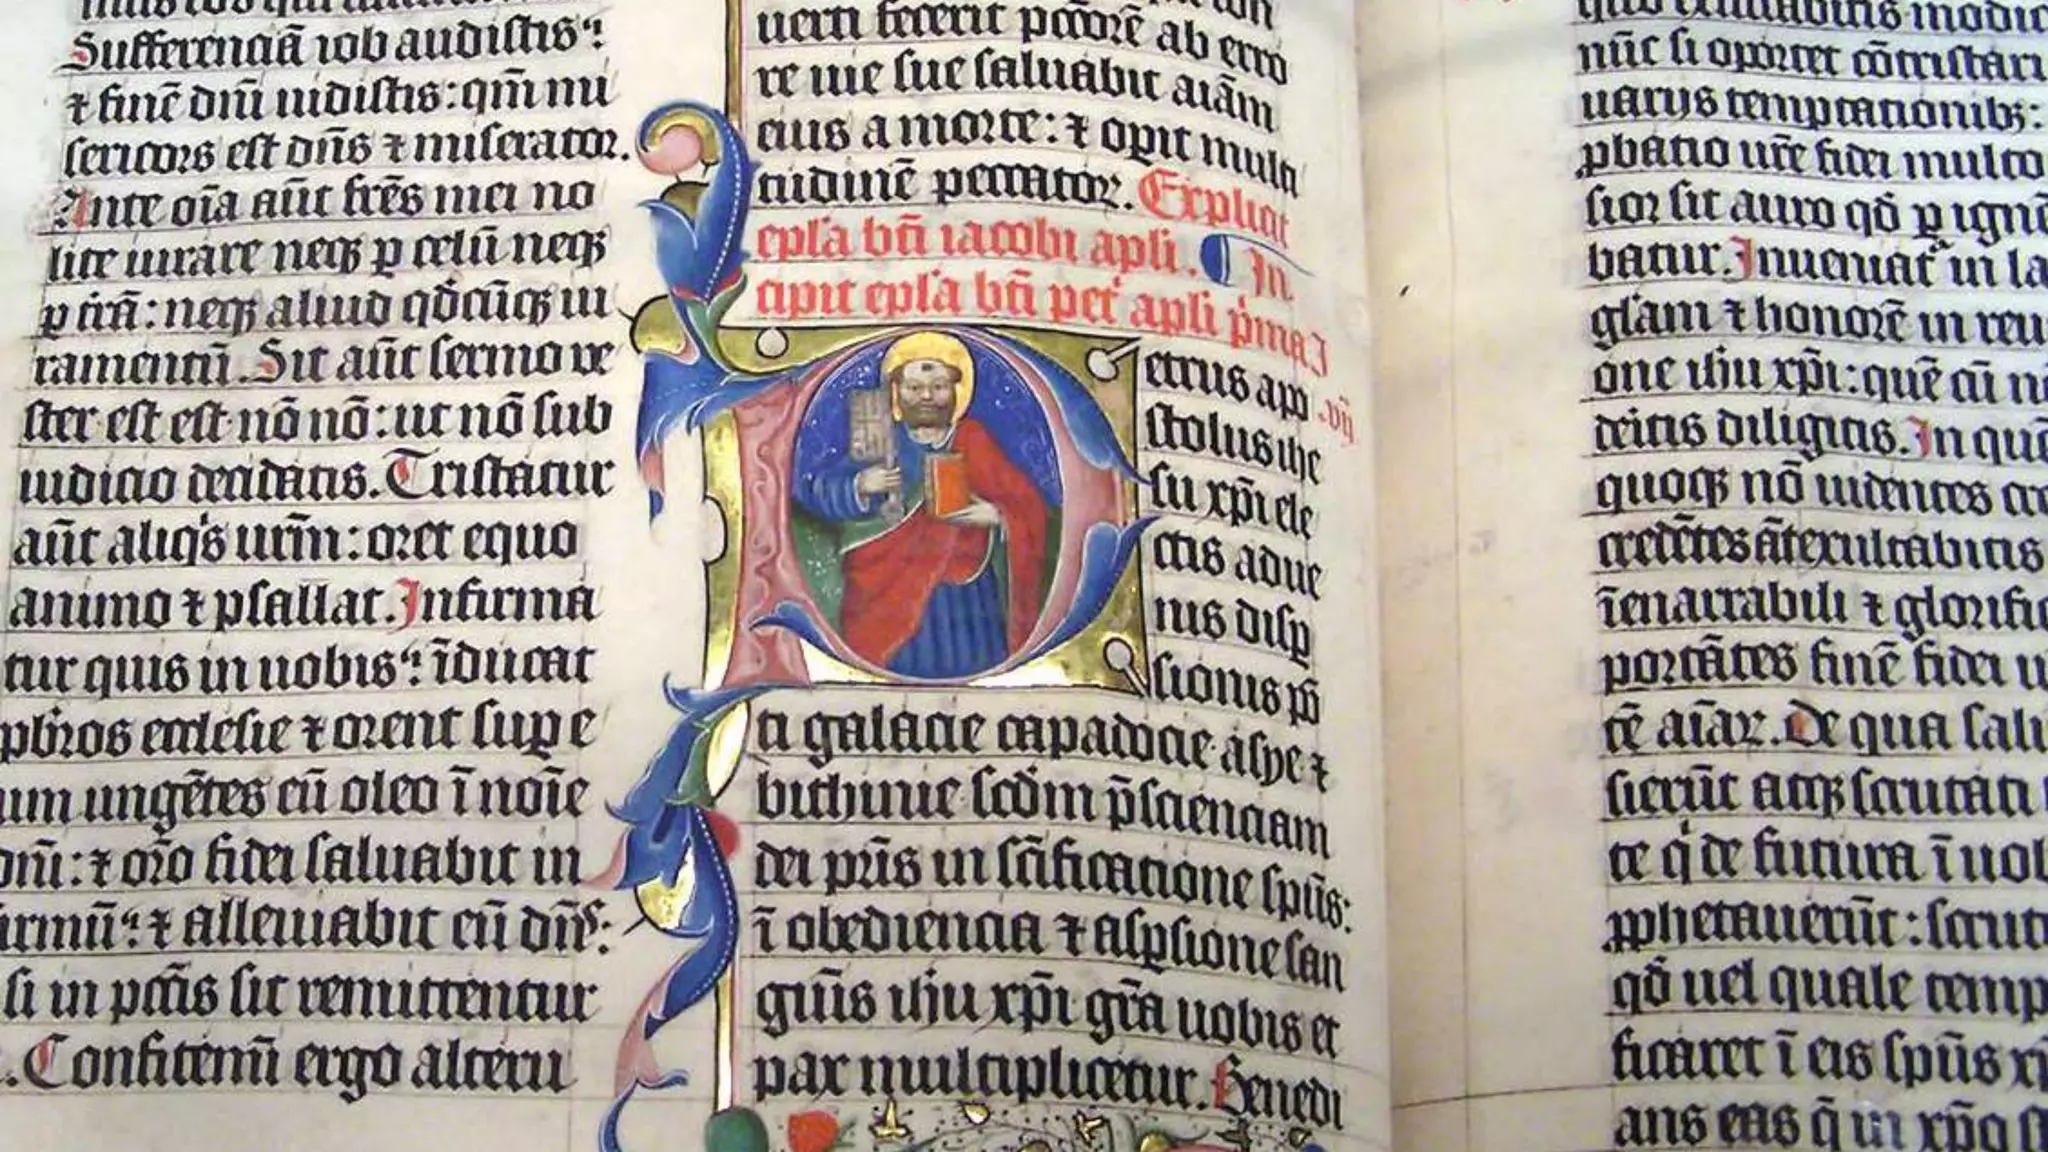 Sufferenciā iob audistis⸵
⁊ finē dn̄i uidistis: qm̄ mi
sericors est dn̄s ⁊ miserator.
Ante oīa aūt fr̄es mei no
lite iurare neqꝫ ꝑ celū neqꝫ
ꝑ tr̄ā: neqꝫ aliud qd̄cūqꝫ iu
ramentū. Sit aūt sermo ve
ster est est nō nō: ut nō sub
iudicio decidatis. Tristatur
aūt aliqⁱs ur̄m: oret equo
animo ⁊ psallat. Infirma
tur quis in uobis⸵ īducat
p̄bros ecclesie ⁊ orent suꝑ e
um ungētes eū oleo ī noīe
dn̄i: ⁊ or̄o fidei saluabit in
firmū⸵ ⁊ alleuiabit eū dn̄s:
si in pc̄c̄is sit remittentur
. Confitemī ergo alteru
uerti fecerit pc̄c̄orē ab erro
re uie sue saluabit aīam
eius a morte: ⁊ oꝑit multi
tudinē peccatoꝝ. Explicit
ep̄la bt̄i iacobi apl̄i. In
cipit ep̄la bt̄i pet͛ apl̄i pⁱma I
Petrus apo .vij
stolus ihe
su xp̄i ele
ctis adue
nis disꝑ
sionis pō
ti galacie capadocie asye ⁊
bithinie scd̄m p̄scienciam
dei pr̄is in sc̄ificatione sp̄us:
ī obediencia ⁊ asꝑsione san
guīs ih̄u xp̄i gr̄a uobis et
pax multiplicetur. Benedi
nūc si oportet cōtristari
uarijs temptationibꝫ:
ꝓbatio ur̄e fidei multo
sior sit auro qd̄ ꝑ ignē
batur. Inueniat͛ in la
gl̄am ⁊ honorē in reu
one ih̄u xp̄i: quē cū n
deitis diligitis. In quē
quoqꝫ nō uidentes cre
credētes āt exultabitis
īenarrabili ⁊ glorific
portātes finē fidei u
tē aīaꝝ. De qua salu
sierūt atqꝫ scrutati
te qⁱ de futura ī uob
ꝓphetauerūt: scrut
qd̄ uel quale temp
ficaret ī eis sp̄us x
ans eas q̄ in xp̄o s